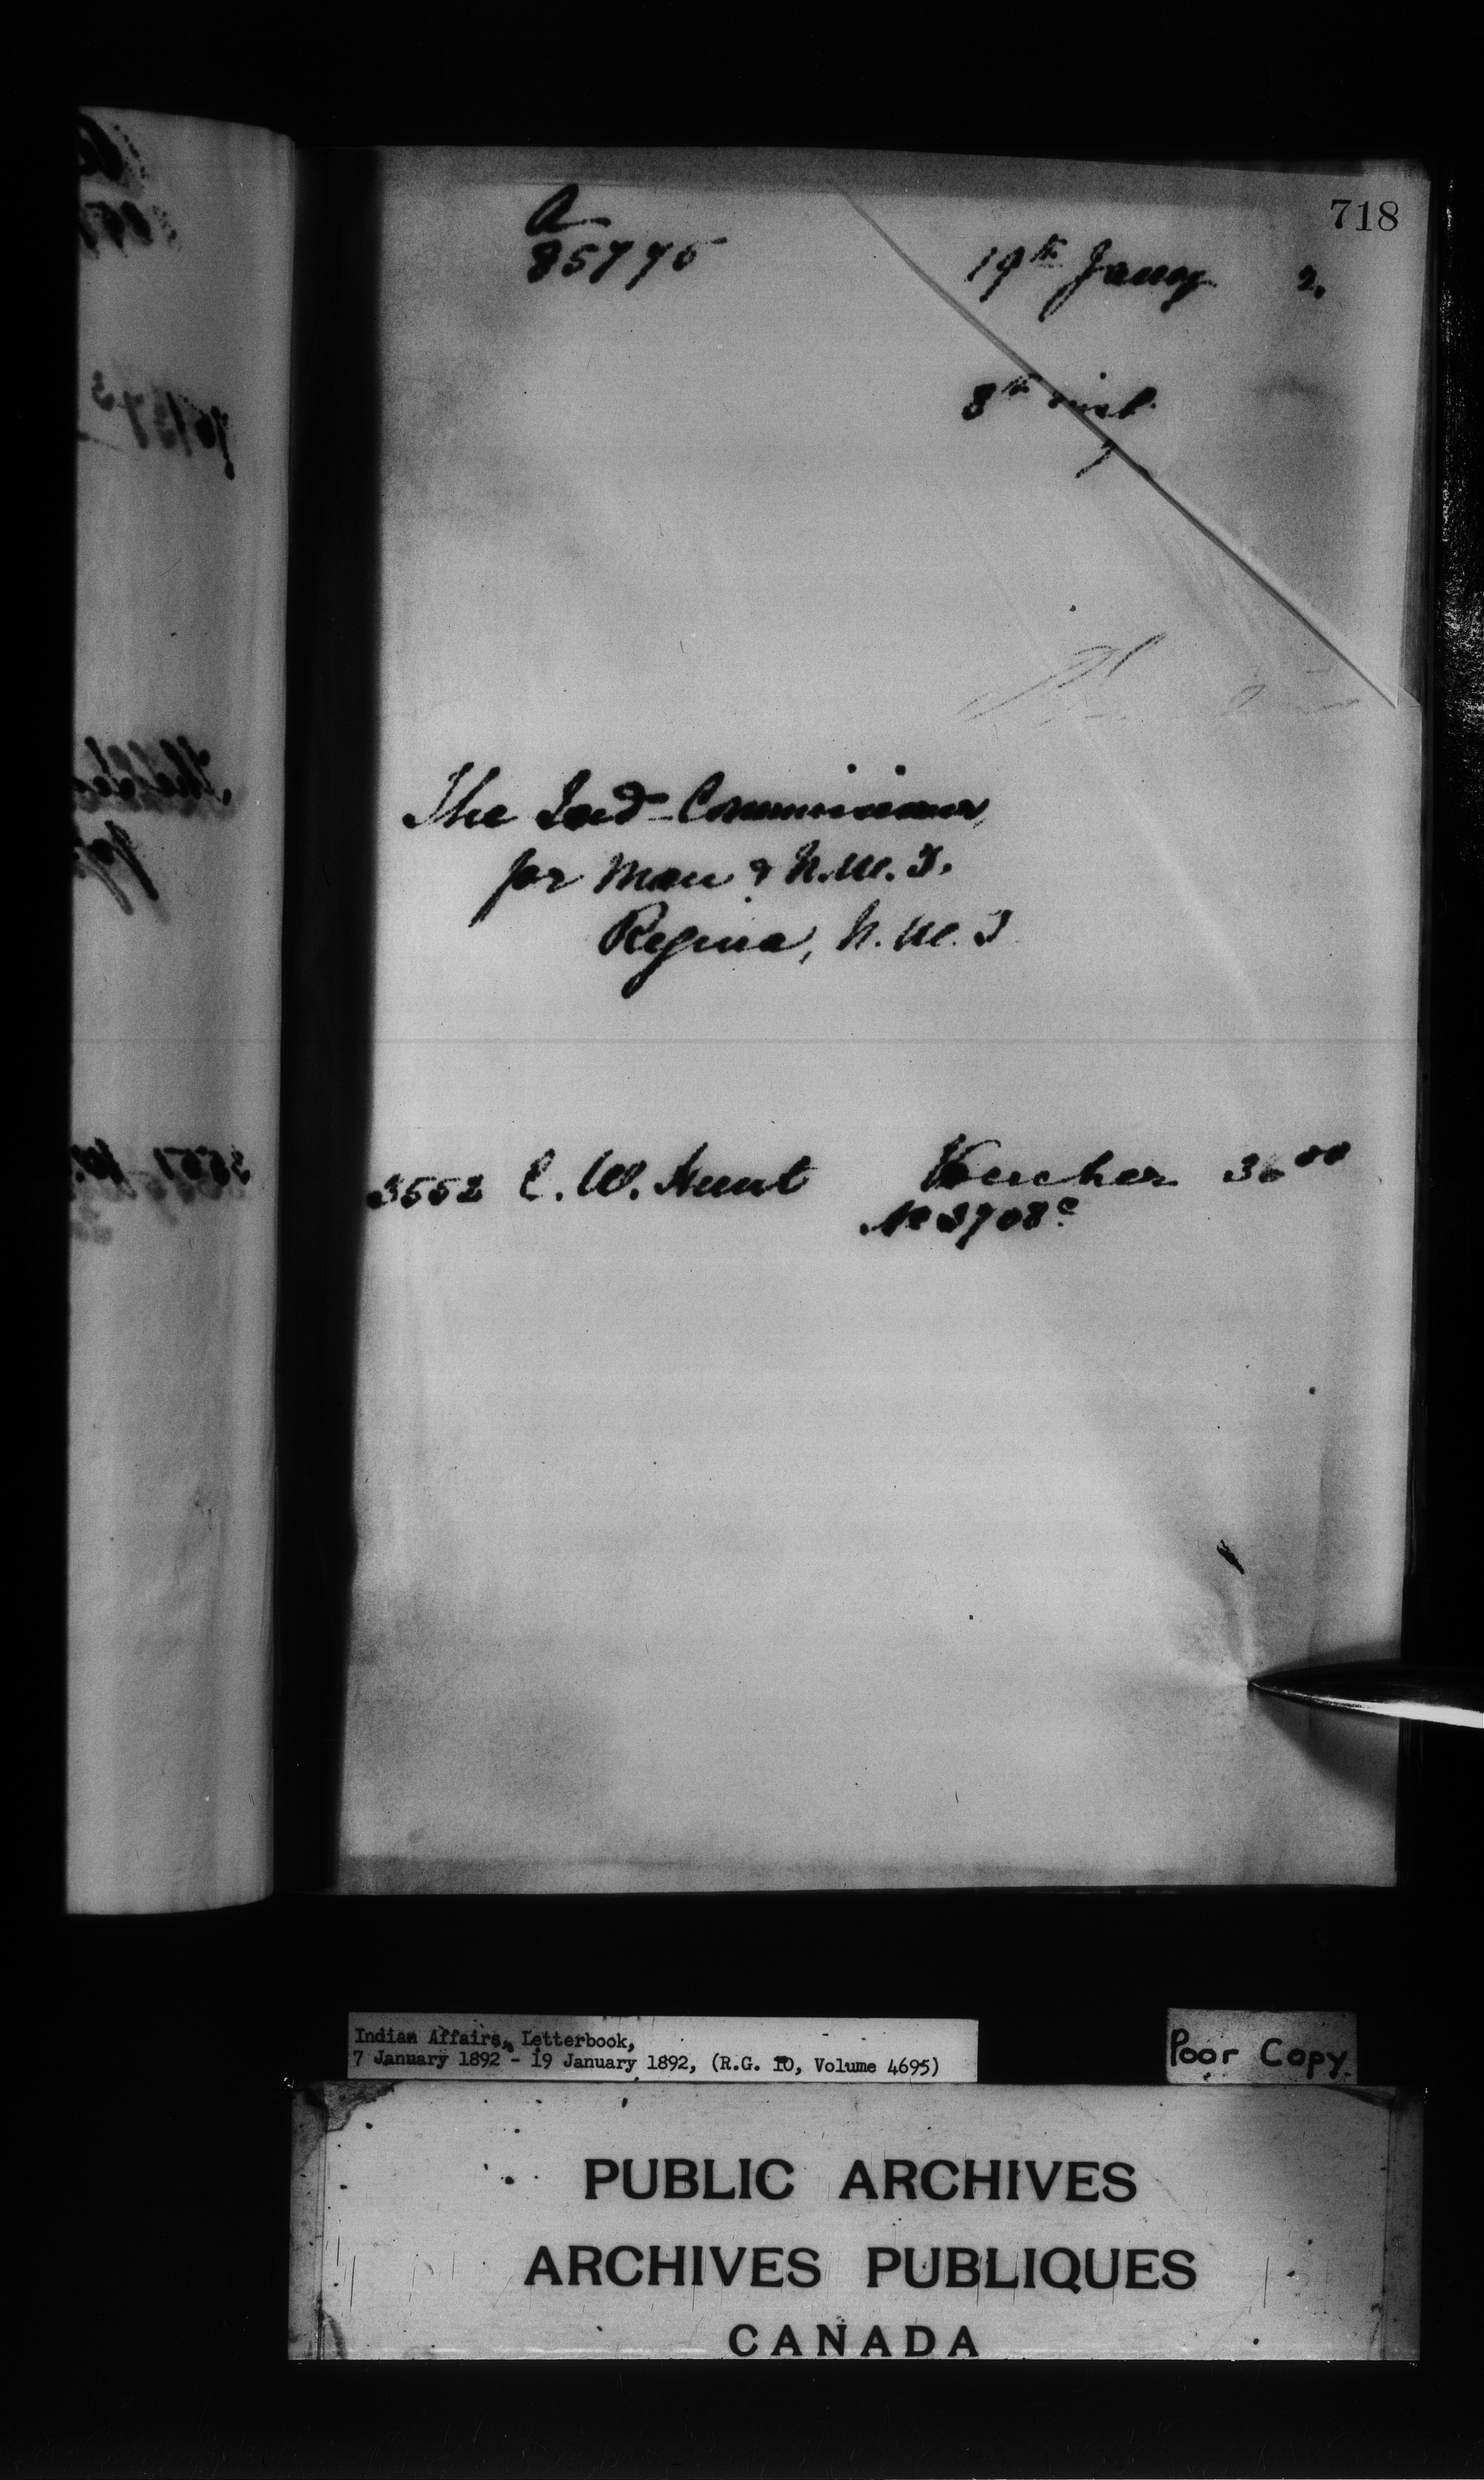 718
A
85775
19th Jany 2.
8th inst
1
The Ind- Commissioner,
for Man & N.W.T.
Regina, N.W.T
3552 C. W. Hunt Voucher 30 00
No 3708 c
Indian Affairs, Letterbook,
7 January 1892 - 19 January 1892, (R.G. 10, Volume 4695)
Poor Copy.
PUBLIC ARCHIVES
ARCHIVES PUBLIQUES
CANADA